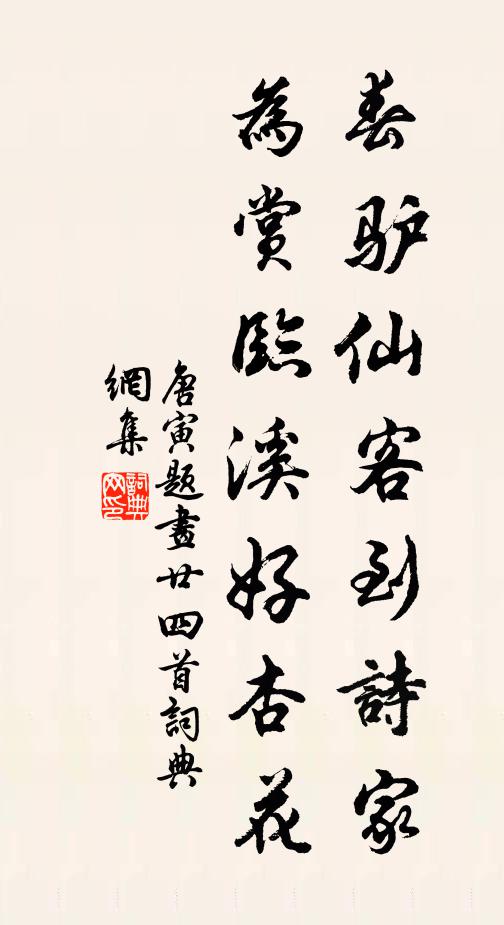 春驴仙客到詩家
為賞臨溪好杏花
唐寅題畫廿四首詞典
網集
詞典
网印